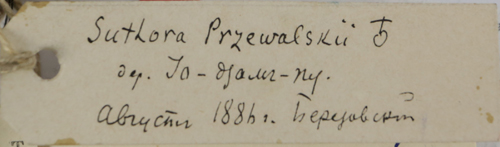 Suthora Przewalskii ♁
дер. Іо-дзамг-пу.
Августъ 1886 г. Березовскій